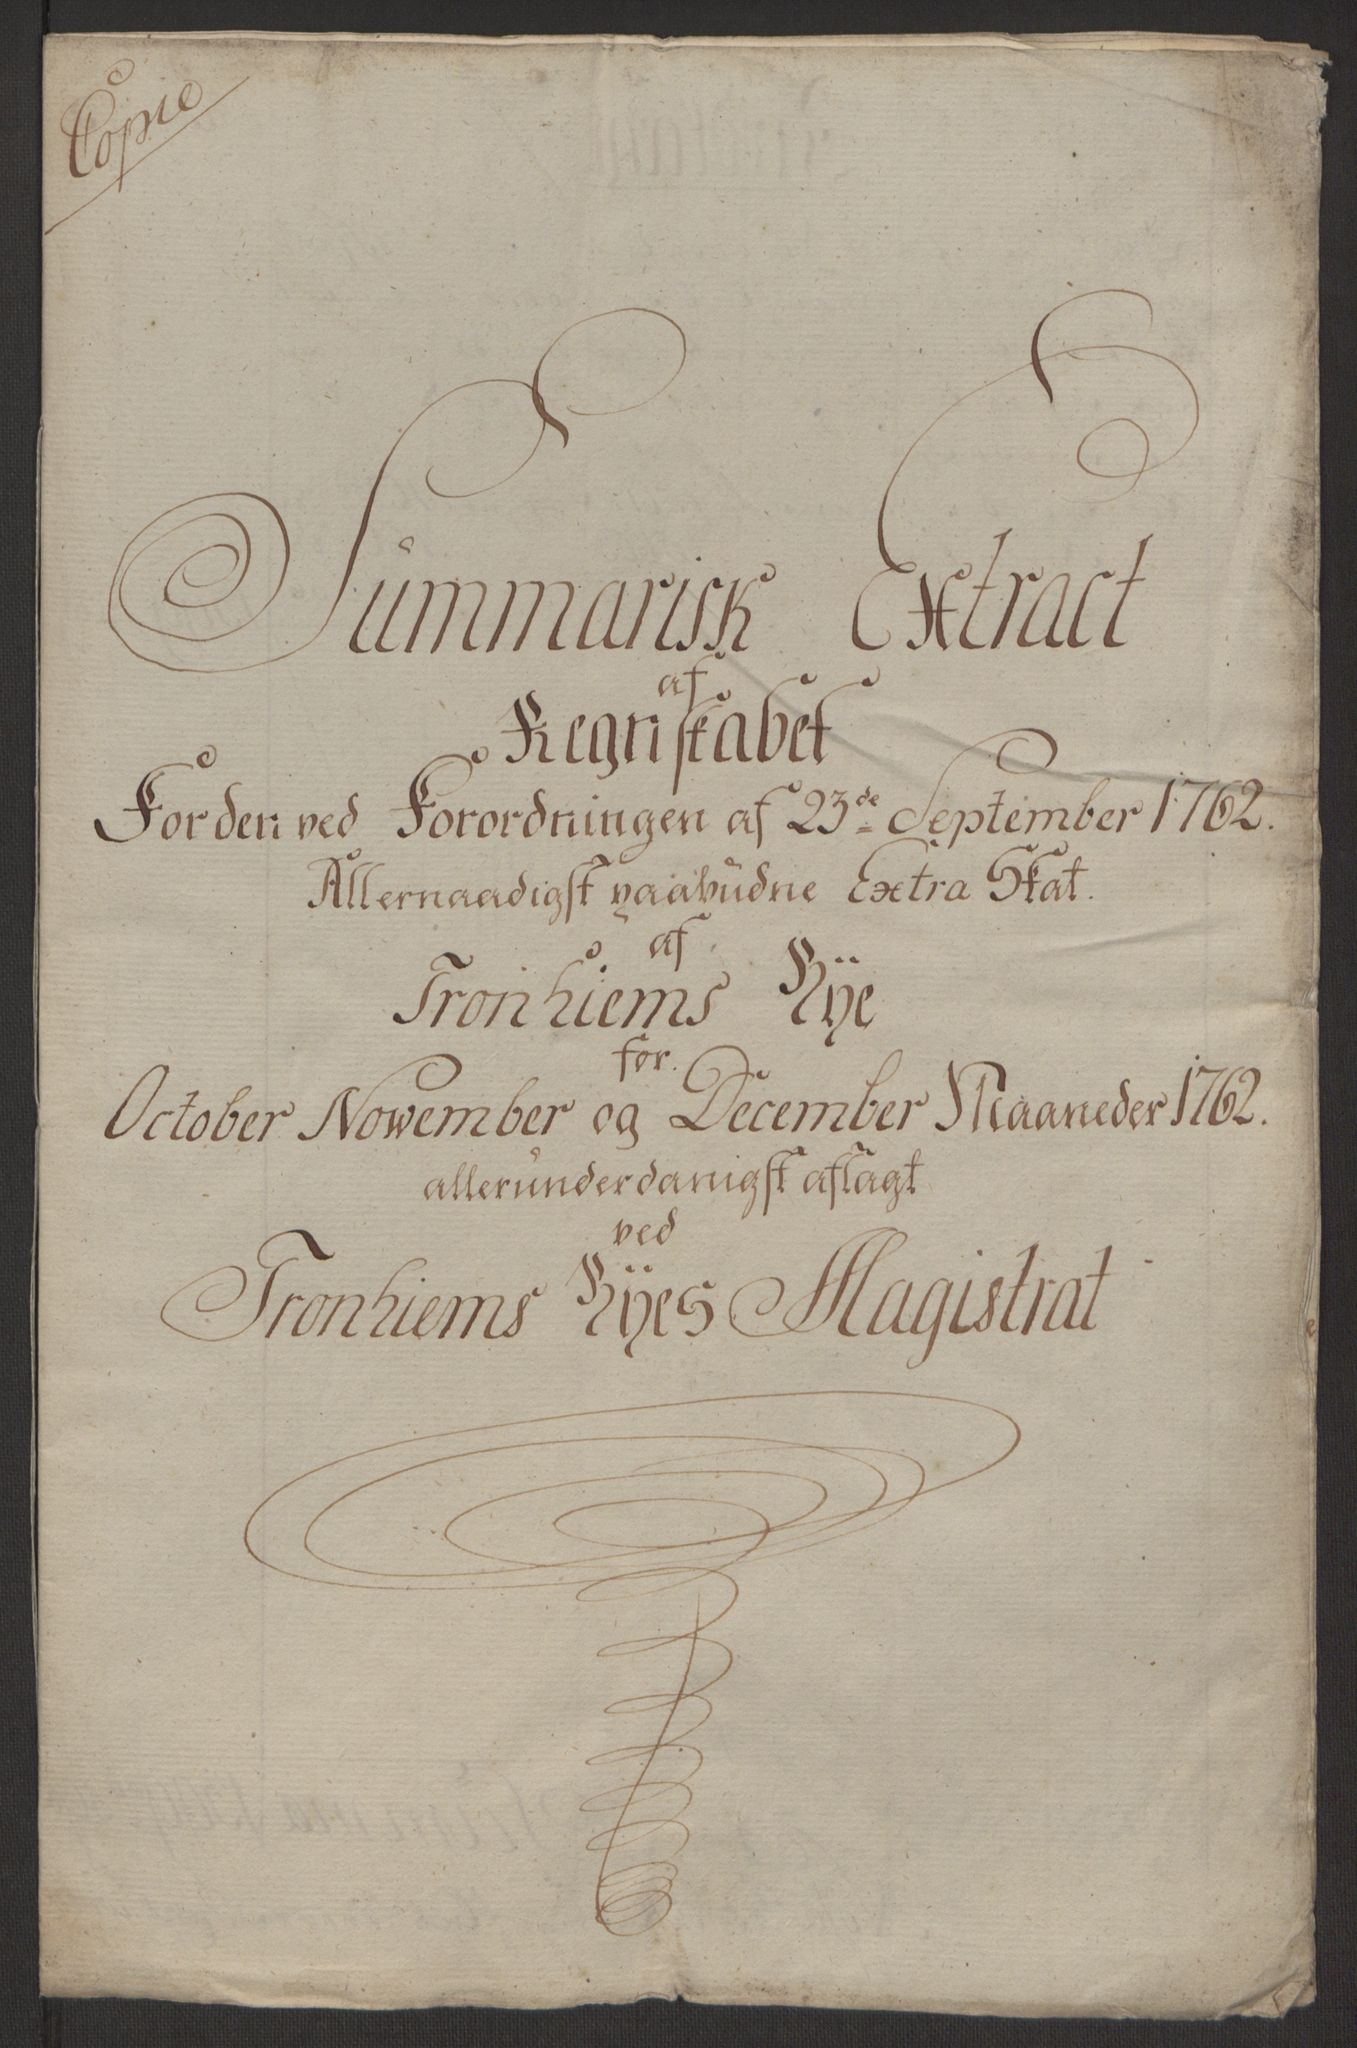 Copie
Summarisk Extract
af
Regnskabet
For den ved Forordningen af 23de September 1762.
Allernaadigst paabudne Extra Skat.
af
Tronhiems Bÿe
for.
October Nowember og December Maaneder 1762.
allerunderdanigst aflagt
ved
Tronhiems Bÿes Magistrat